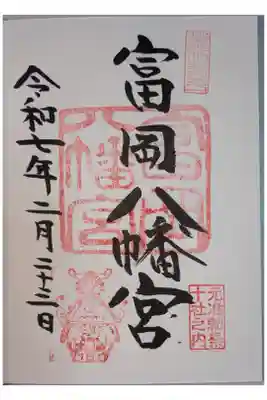 富岡八幡宮
富岡
八幡宮
元准勅祭
十社之内
令和七年二月二十三日